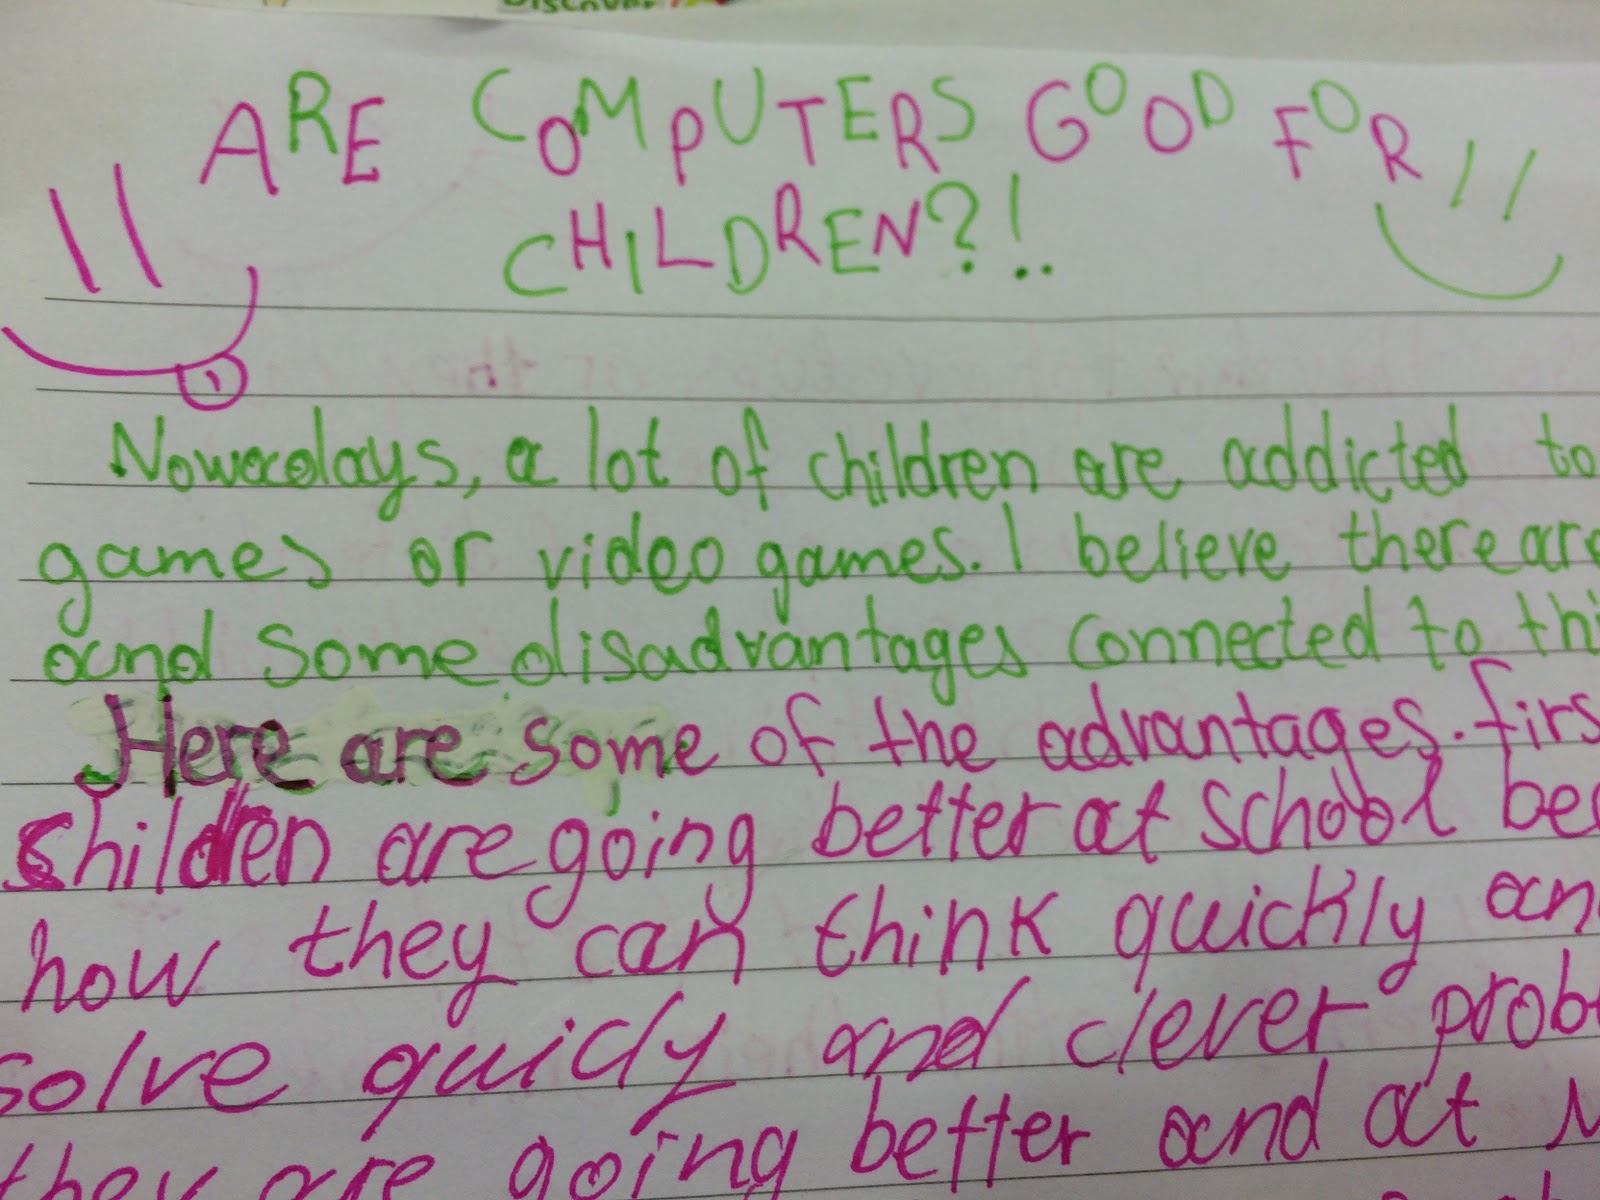 Discover
ARE COMPUTERS GOOD FOR
CHILDREN?!..
Nowadays, a lot of children are addicted to
games or video games. I believe there are
and some disadvantages connected to thi
Here are some of the advantages. firs
children are going better at school bec
how they can think quickly an
solve quicly and clever prob
they are going better and at